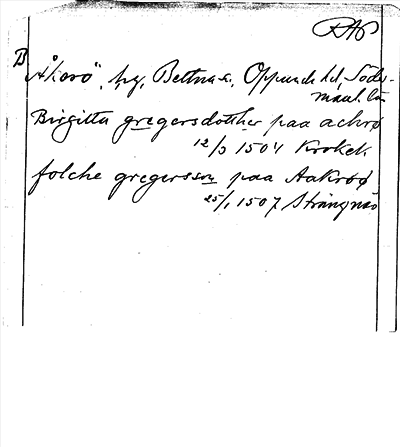 RAP
B
Åkerö, hg, Bettna s., Oppunda hd, Söder-
manl. län
Birgitta gregersdotther paa achrø
12/3 1504 Krokek
folche gregersson paa Aakrøø
25/1 1507 Strängnäs